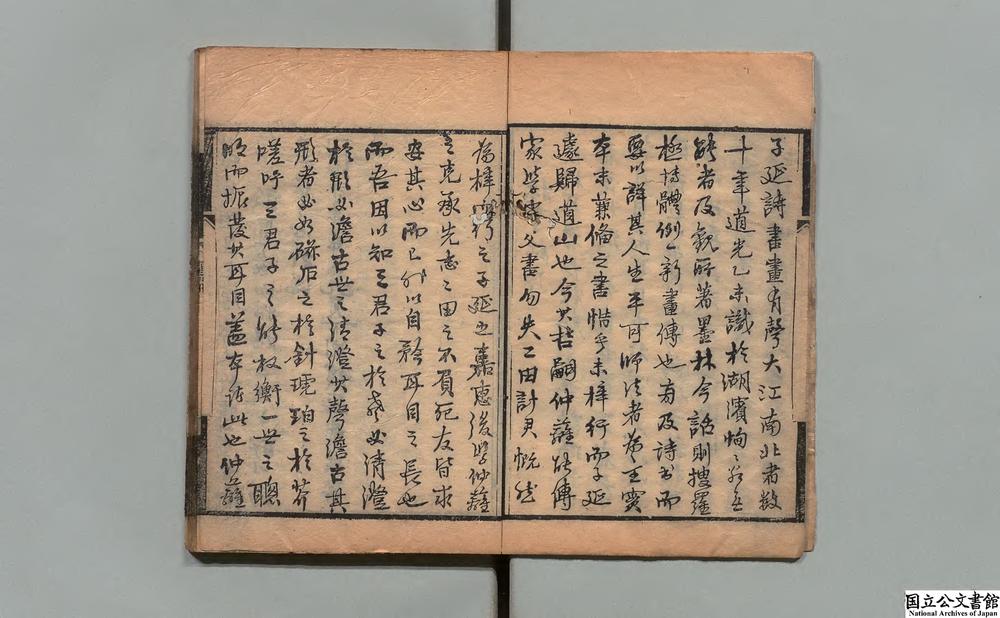 子延詩書畫有聲大江南北者數
十年道光乙未識於湖濱恂恂若無
能者及觀所著墨林今話則搜羅
極博體例一新畫傳也旁及詩書而
要以詳其人生平可師法者為主實
本末兼備之書惜乎未梓行而子延
遽歸道山也今其哲嗣仲籬能傳
家學讀父書勿失二田計君慨然
為梓行之子延之嘉惠後學仲籬
之克承先志二田之不負死友皆求
安其心而已非以自矜耳目之長也
而吾因以知三君子之於
必清澄
於形必澹古世之清澄其聲澹古其
形者必如磁石之於針琥珀之於芥
嗟呼三君子之能權衡一世之聰
明而振發其耳目蓋在此也仲籬
国立公文書館
National Archives of Japan